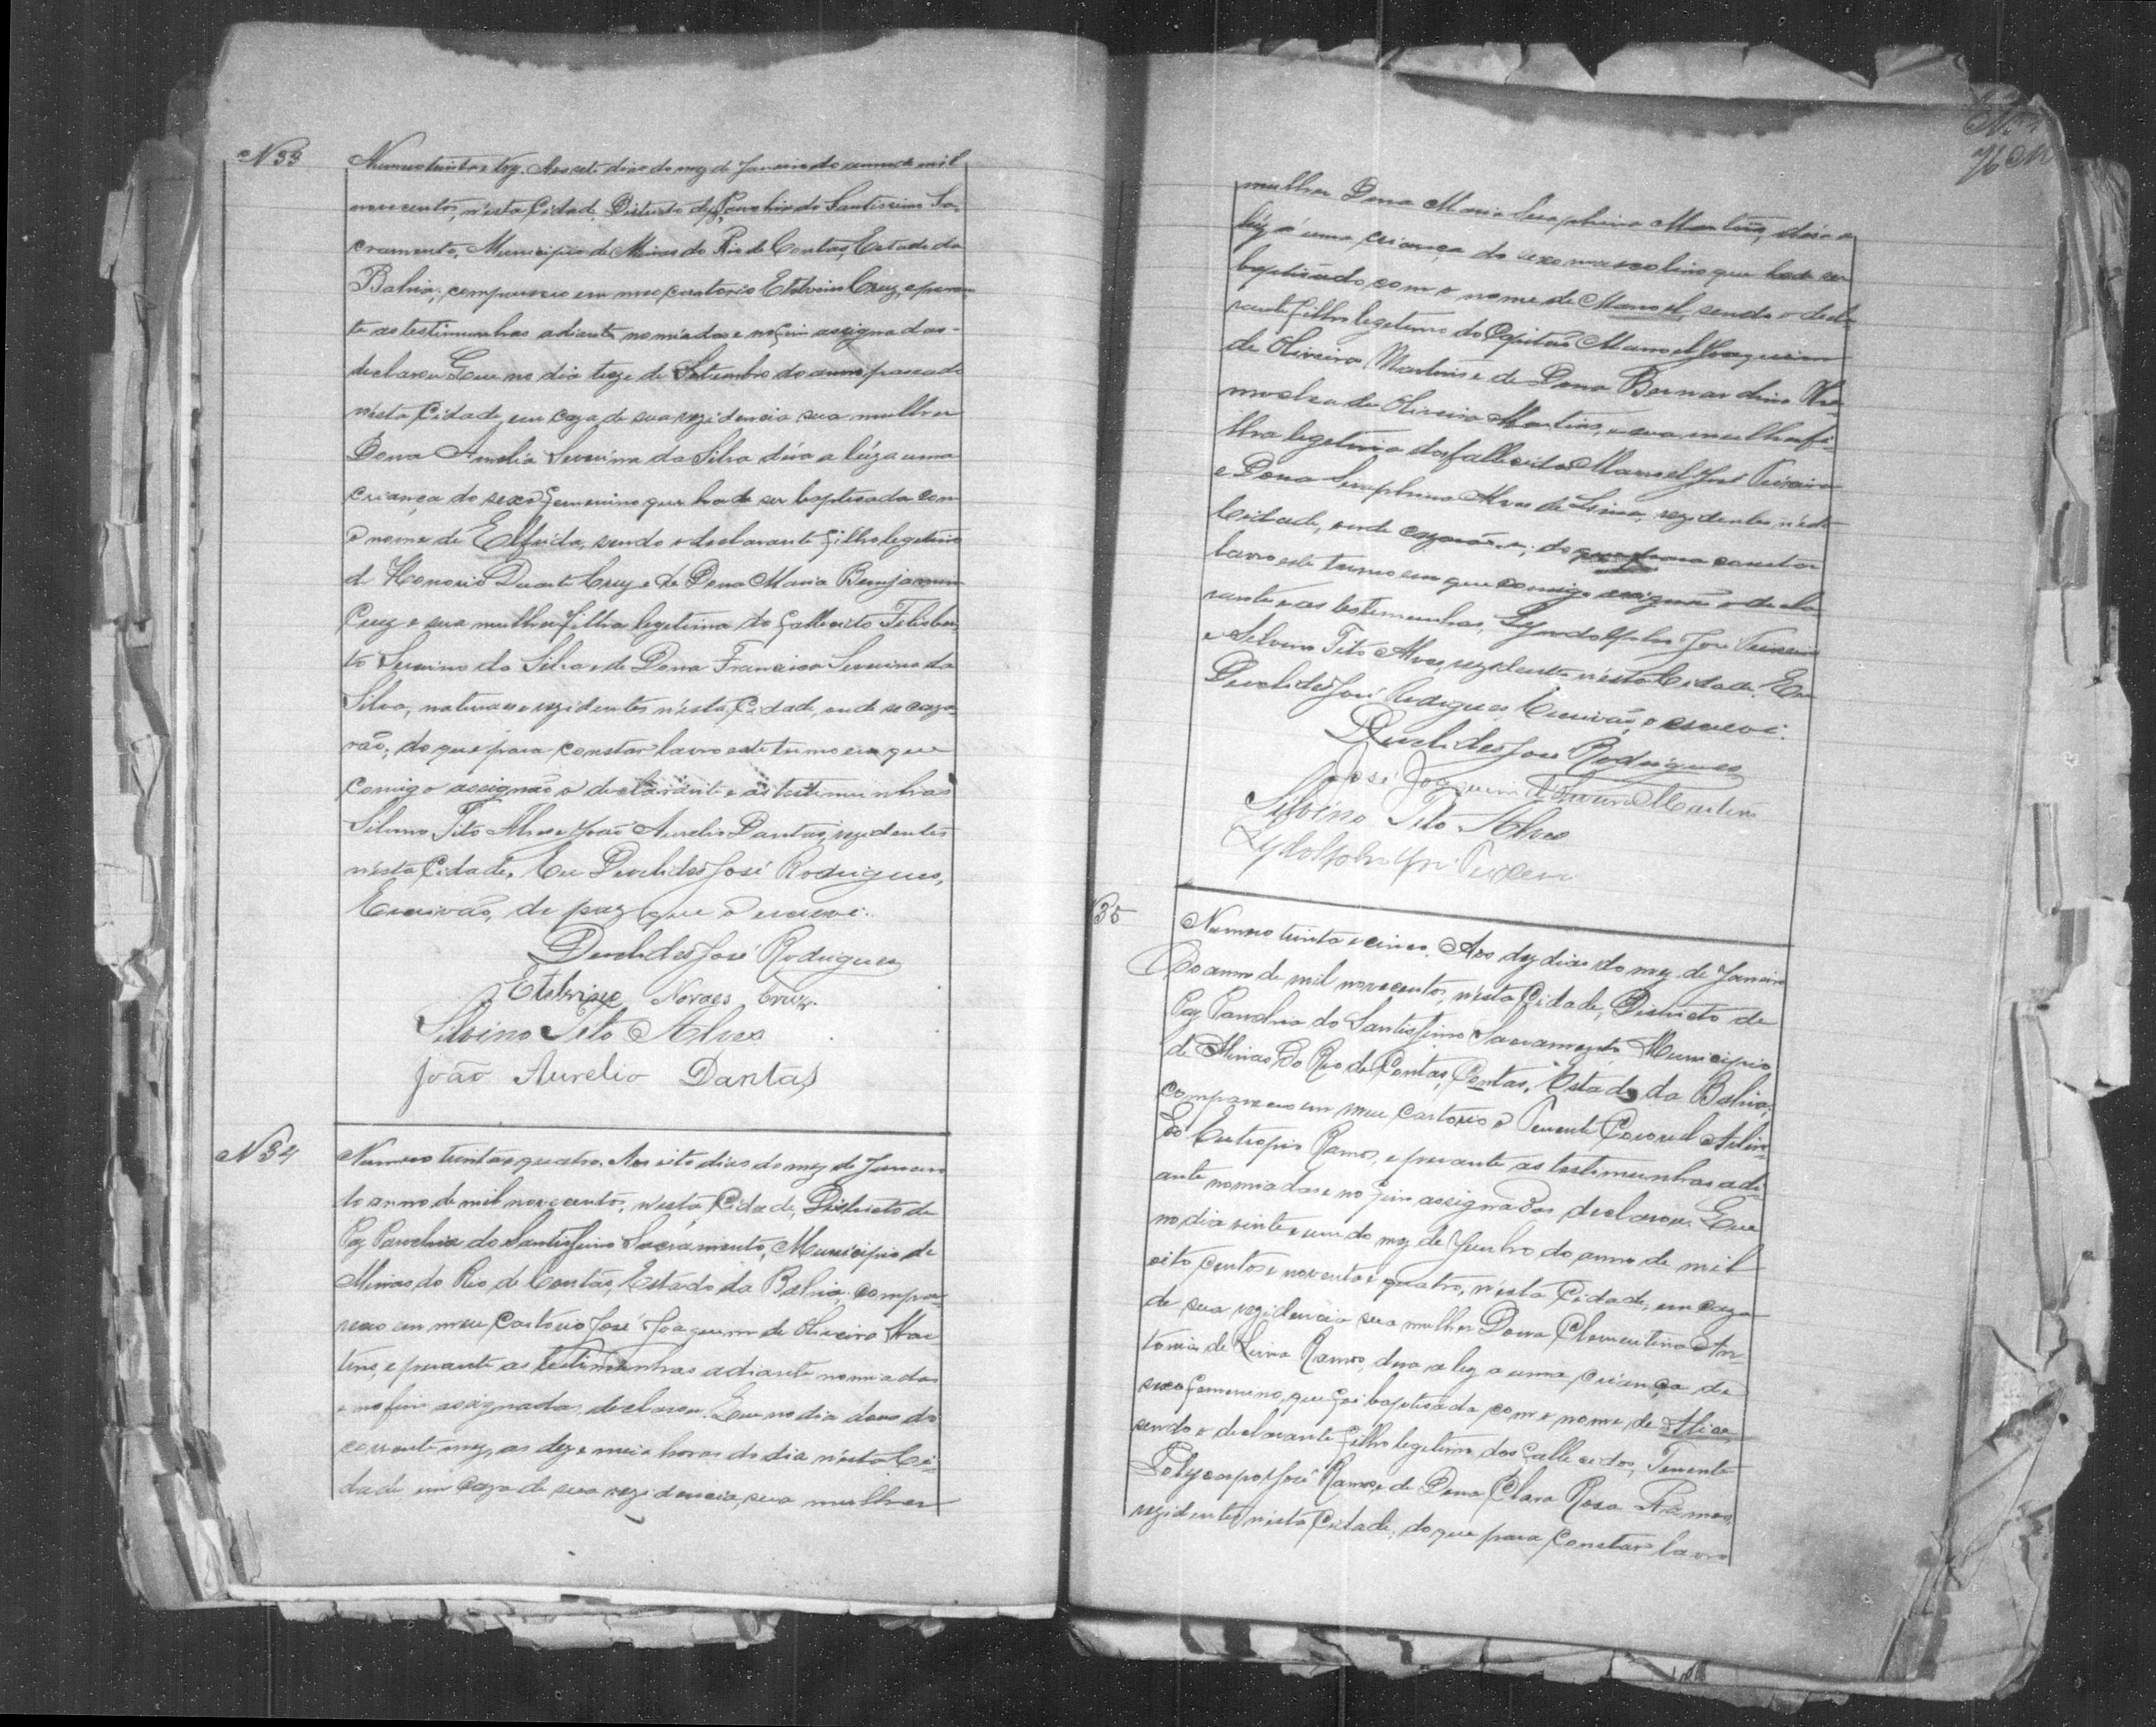 N 33
Numero trinta e trez. Aos sete dias do mez de Janeiro do anno de mil
novecentos, n'esta Cidade, Districto de Paz, Parochia do Santissimo Sa-
cramento, Municipio de Minas do Rio de Contas, Estado da
Bahia, compareceu em meu cartorio Etelvino Cruz, e peran-
te as testimunhas adiante nomiadas e no fim assignadas-
declarou Que no dia treze de Setembro do anno passado
n'esta Cidade, em caza de sua rezidencia sua mulher
Dona Amelia Severina da Silva déra a lúz a uma
criança do sexo femenino que hade ser baptisada com
o nome de Elfrida, sendo o declarante filho legetimo
de Honorio Duarte Cruz e de Dona Maria Benjamim
Cruz e sua mulher filha legetima do fallecido Felisber-
to Severino da Silva e de Dona Francisca Severina da
Silva, naturaes e rezidentes n'esta Cidade, onde se caza-
rão; do que para constar lavro este termo em que
comigo assignão o declarante e as testimunhas
Silvino Tito Alves e João Aurelio Dantas, rezidentes
n'esta Cidade. Eu Deuclides José Rodrigues,
Escrivão de paz que o escrevi.
Deuclides José Rodrigues
Etelvino Novaes Cruz.
Silvino Tito Alves
João Aurelio Dantas
N 34
Numero trinta e quatro. Aos oito dias do mez de Janeiro
do anno de mil novecentos, n'esta Cidade, Districto de
Paz Parochia do Santissimo Sacramento, Municipio de
Minas do Rio de Contas, Estado da Bahia, compa-
receo em meu Cartorio José Joaquim de Oliveira Mar-
tins, e perante as testimunhas adiante nomiadas
e no fim assignadas, declarou. Que no dia dous do
corrente mez, as dez e meia horas do dia n'esta Ci-
dade em caza de sua rezidencia, sua mulher
mulher Dona Maria Seraphina Martins, déra a
lúz a uma criança do sexo mascolino que hade ser
baptisado com o nome de Manoel, sendo o decla-
rante filho legetimo do Capitão Manoel Joaquim
de Oliveira Martins e de Dona Bernardina
de Oliveira Martins, e sua mulher fi-
lha legetima do fallecido Manoel José Teixeira
e Dona Seraphina Alves de Lima, rezidentes n'esta
Cidade, onde cazarão-se; do que para constar
lavro este termo em que comigo assignão o decla-
rante e as testemunhas, Lyndolpho José Teixeira
e Silvino Tito Alves, rezidentes n'esta Cidade. Eu
Deuclides José Rodrigues, Escrivão, o escrevi.
Deuclides José Rodrigues
José Joaquim d'Oliveira Martins
Silvino Tito Alves
José Teixeira
35
Numero trinta e cinco. Aos dez dias do mez de Janeiro
do anno de mil novecentos, n'esta Cidade, Districto de
Paz Parochia do Santissimo Sacramento Municipio
de Minas do Rio de Contas, Contas, Estado da Bahia,
compareceo em meu cartorio o Tenente Coronel
Eutropio Ramos, e perante as testimunhas adi-
ante nomiadas e no fim assignadas declarou. Que
no dia vinte e um do mez de Junho do anno de mil
oito centos e noventa e quatro, n'esta Cidade, em caza
de sua rezidencia sua mulher Dona Clementina An-
tonia de Lima Ramos, dera a luz a uma criança do
sexo femenino, que foi baptisada com o nome de Alice,
sendo o declarante filho legetimo dos fallecidos, Tenente
Polycarpo José Ramos e de Dona Clara Rosa Ramos,
rezidentes n'esta Cidade, do que para constar lavro